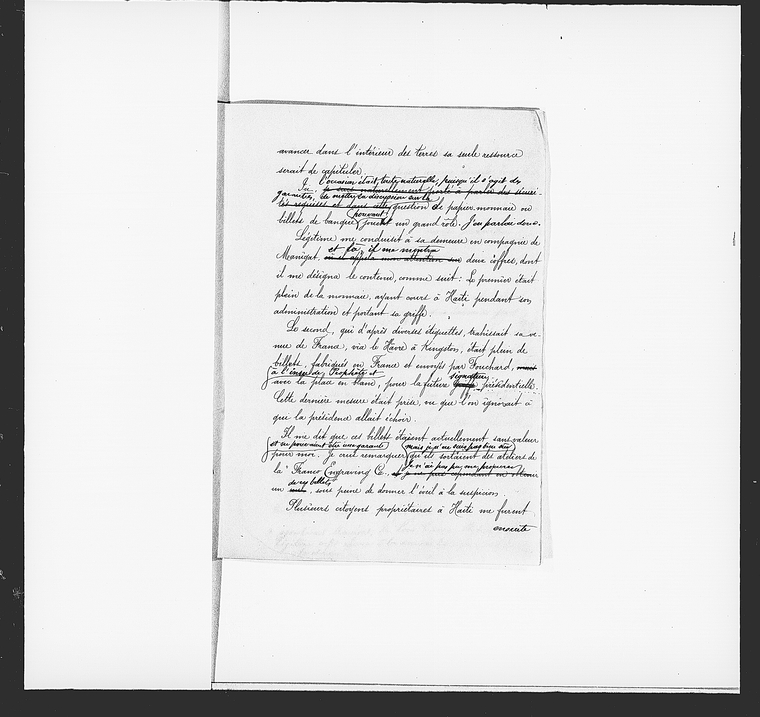 avancer dans l'intérieur des terres sa seule ressource
serait de capituler.
Ici, l'occasion était toute naturelle, puisqu'il s'agit des
je suis naturellement porté à parler des sécuri-
garanties, de mettre la description sur la
tés requises et dans cette question de papier monnaie ou
billets de banque pouvant jouer un grand rôle. J'en parlai donc.
Légitime me conduisit à sa demeure en compagnie de
et là, il me montra
Manigat, où il appela mon attention sur deux coffres, dont
il me désigna le contenu, comme suit: Le premier était
plein de la monnaie, ayant cours à Haïti pendant son
administration et portant sa griffe.
Le second, qui d'après diverses étiquettes, trahissait sa ve-
nue de France, via le Havre à Kingston, était plein de
billets, fabriqués en France et envoyés par Fouchard, mais
à l'insu de Prophète et
signature
avec la place en blanc, pour la future griffe présidentielle.
Cette dernière mesure était prise, vu que l'on ignorait à
qui la présidence allait échoir.
Il me dit que ces billets étaient actuellement sans valeur
et ne pouvaient être une garantie (mais je n'en suis pas bien sûr)
pour moi. Je crus remarquer qu'ils sortaient des ateliers de
la "Franco Engraving Co., et je ne pus cependant en obtenir
je n'ai pas pu me procurer
de ces billets
un seul, sous peine de donner l'éveil à la suspicion.
Plusieurs citoyens propriétaires à Haïti me furent
ensuite